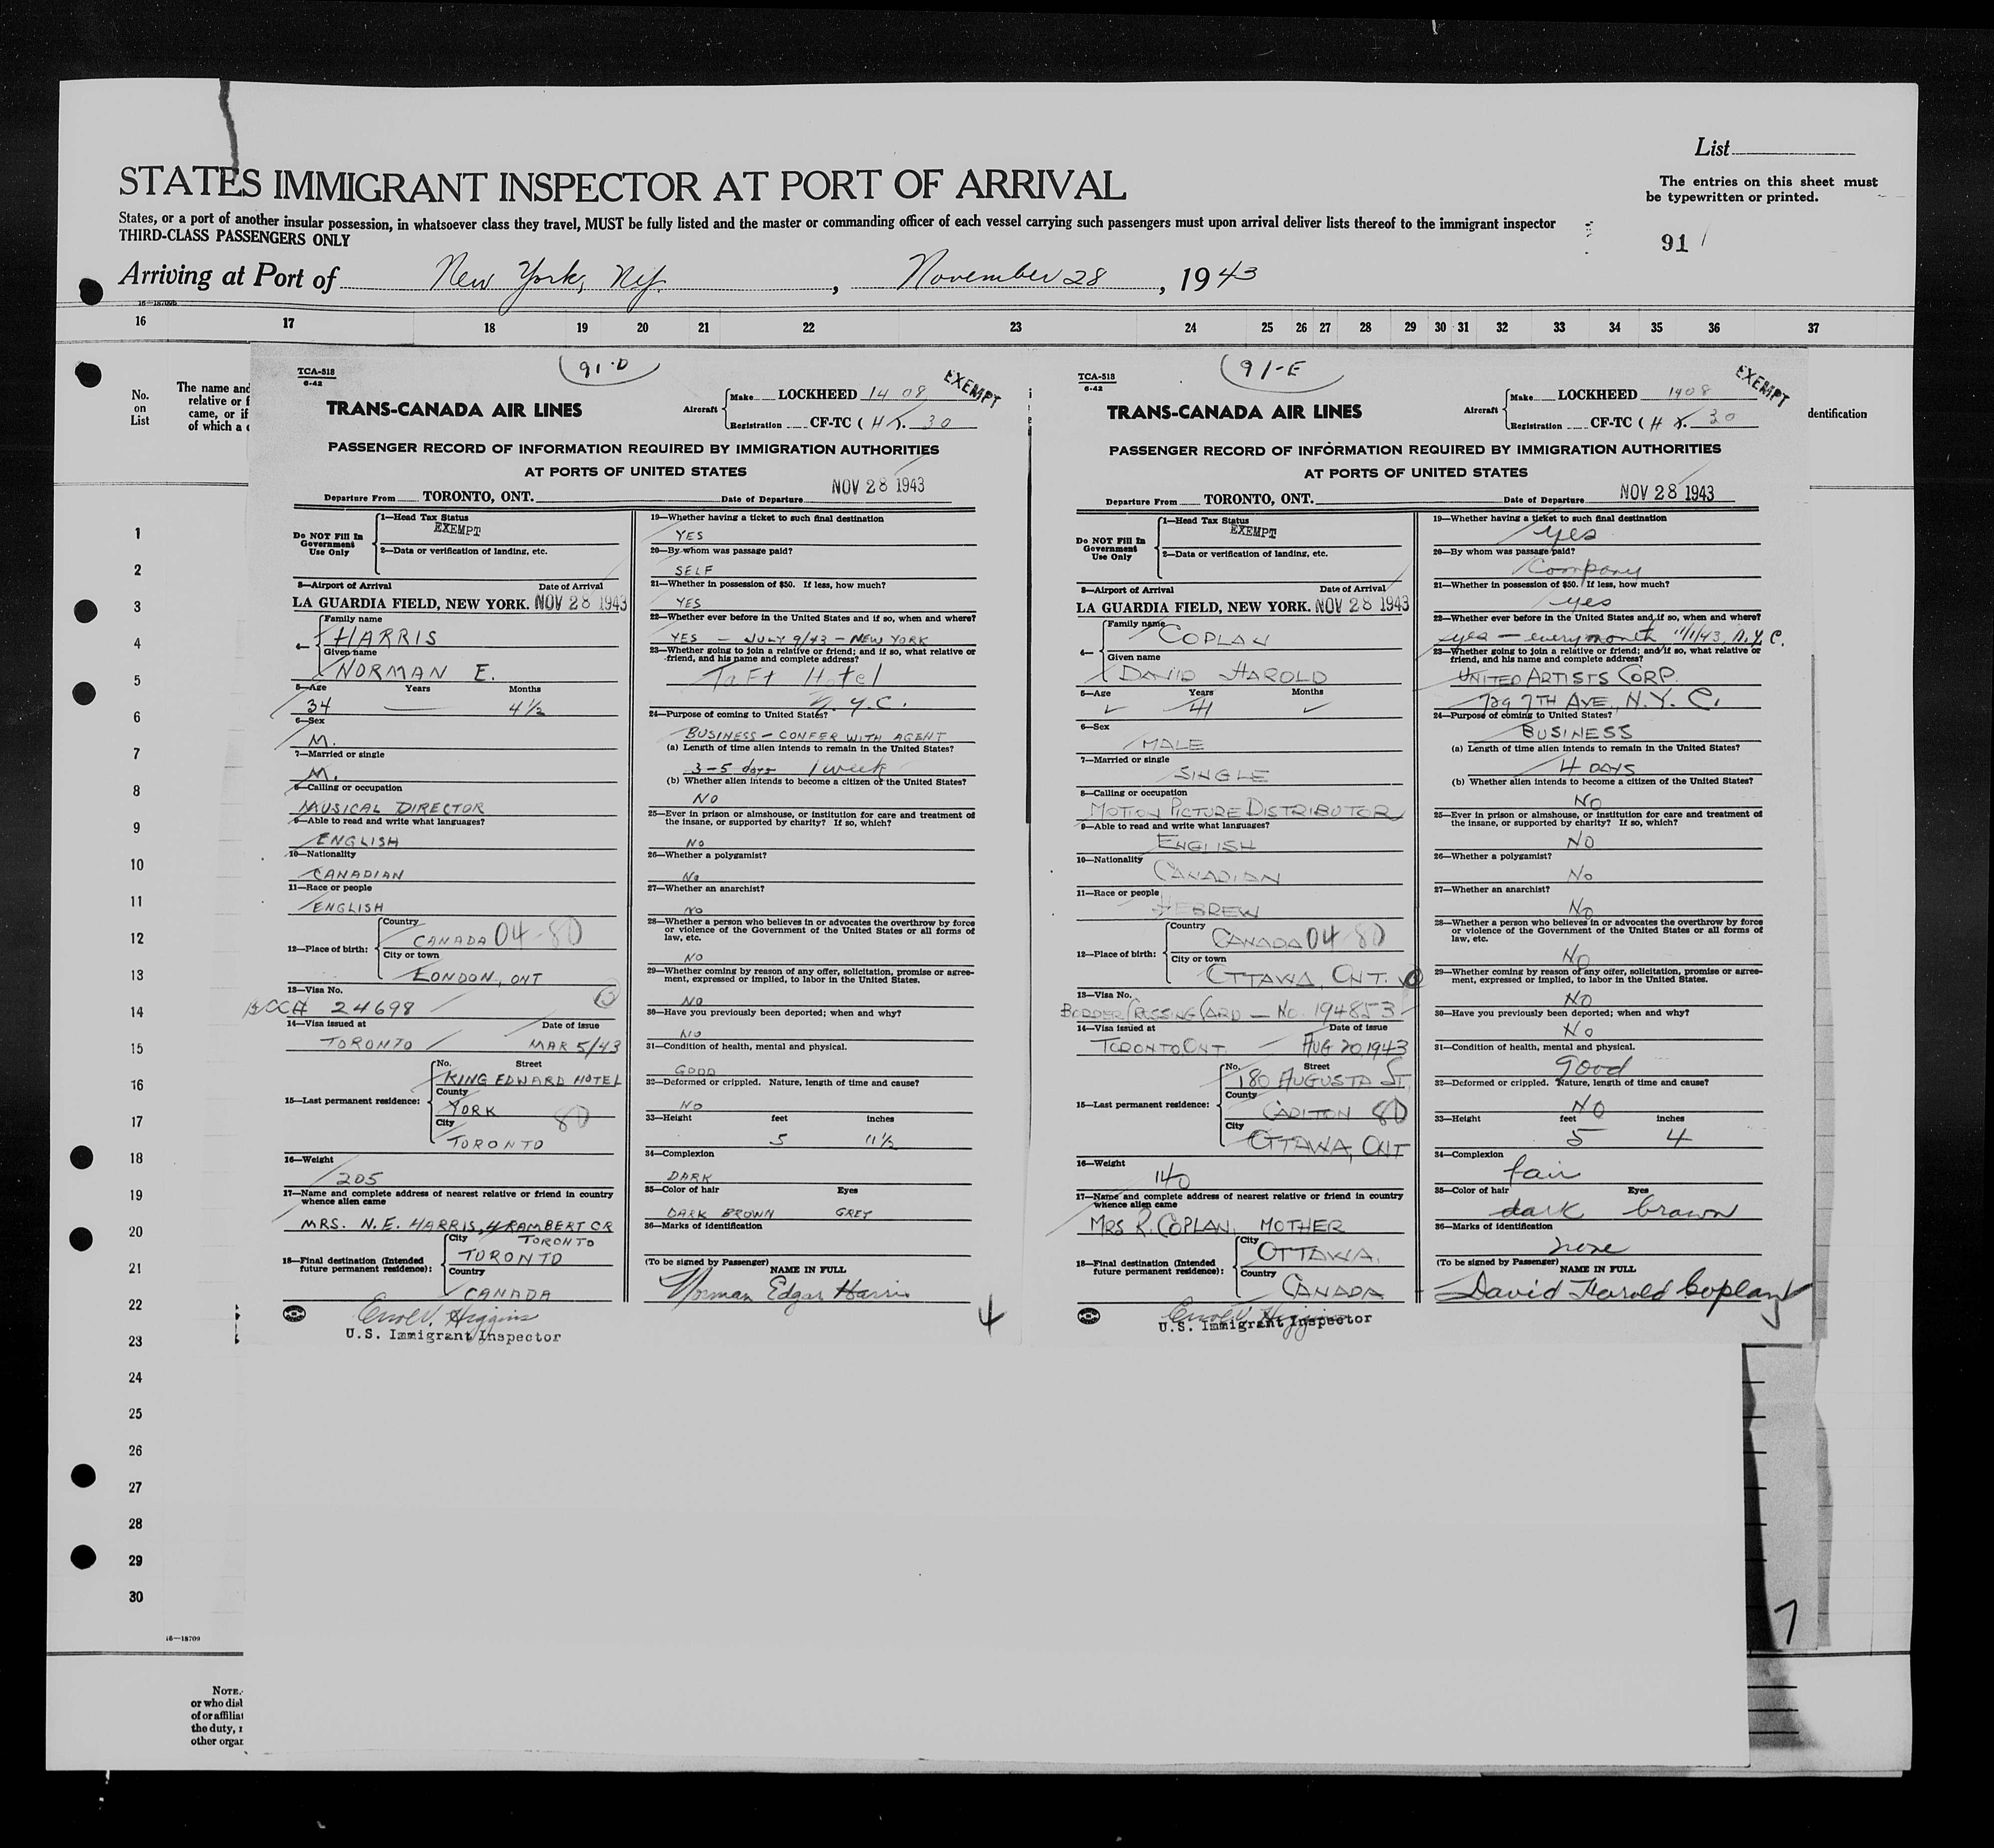 List
STATES IMMIGRANT INSPECTOR AT PORT OF ARRIVAL
The entries on this sheet must
be typewritten or printed.
States, or a port of another insular possession, in whatsoever class they travel, MUST be fully listed and the master or commanding officer of each vessel carrying such passengers must upon arrival deliver lists thereof to the immigrant inspector
THIRD-CLASS PASSENGERS ONLY
91
Arriving at Port of New York, NY. , November 28 , 1943
16—18709b
16 17 18 19 20 21 22 23 24 25 26 27 28 29 30 31 32 33 34 35 36 37
No.
on
List
The name and
relative or f
came, or if
of which a c
dentification
1
2
3
4
5
6
7
8
9
10
11
12
13
14
15
16
17
18
19
20
21
22
23
24
25
26
27
28
29
30
16—18709
NOTE.
or who disl
of or affiliat
the duty, r
other organ
7
91-D
TCA-518
6-42
TRANS-CANADA AIR LINES
Aircraft
Make LOCKHEED 14 08
Registration CF-TC ( H . 30
EXEMPT
PASSENGER RECORD OF INFORMATION REQUIRED BY IMMIGRATION AUTHORITIES
AT PORTS OF UNITED STATES
Departure From TORONTO, ONT. Date of Departure NOV 28 1943
Do NOT Fill In
Government
Use Only
1—Head Tax Status
EXEMPT
2—Data or verification of landing, etc.
3—Airport of Arrival Date of Arrival
LA GUARDIA FIELD, NEW YORK. NOV 28 1943
4—
Family name
HARRIS
Given name
NORMAN E.
5—Age Years Months
34 — 4 1/2
6—Sex
M.
7—Married or single
M.
8—Calling or occupation
MUSICAL DIRECTOR
9—Able to read and write what languages?
ENGLISH
10—Nationality
CANADIAN
11—Race or people
ENGLISH
12—Place of birth:
Country
CANADA 04-80
City or town
LONDON, ONT
13—Visa No.
BCC# 24698
14—Visa issued at Date of issue
TORONTO MAR 5/43
15—Last permanent residence:
No. Street
KING EDWARD HOTEL
County
YORK 80
City
TORONTO
16—Weight
205
17—Name and complete address of nearest relative or friend in country
whence alien came
MRS. N.E. HARRIS, 4 RAMBERT CR
TORONTO
18—Final destination (Intended
future permanent residence):
City
TORONTO
Country
CANADA
Errol V. Higgins
U.S. Immigrant Inspector
19—Whether having a ticket to such final destination
YES
20—By whom was passage paid?
SELF
21—Whether in possession of $50. If less, how much?
YES
22—Whether ever before in the United States and if so, when and where?
YES — JULY 9/43 — NEW YORK
23—Whether going to join a relative or friend; and if so, what relative or
friend, and his name and complete address?
Taft Hotel
N.Y.C.
24—Purpose of coming to United States?
BUSINESS — CONFER WITH AGENT
(a) Length of time alien intends to remain in the United States?
3-5 days 1 week
(b) Whether alien intends to become a citizen of the United States?
NO
25—Ever in prison or almshouse, or institution for care and treatment of
the insane, or supported by charity? If so, which?
NO
26—Whether a polygamist?
No
27—Whether an anarchist?
NO
28—Whether a person who believes in or advocates the overthrow by force
or violence of the Government of the United States or all forms of
law, etc.
NO
29—Whether coming by reason of any offer, solicitation, promise or agree-
ment, expressed or implied, to labor in the United States.
NO
30—Have you previously been deported; when and why?
NO
31—Condition of health, mental and physical.
GOOD
32—Deformed or crippled. Nature, length of time and cause?
NO
33—Height feet inches
5 11 1/2
34—Complexion
DARK
35—Color of hair Eyes
DARK BROWN GREY
36—Marks of identification
(To be signed by Passenger)
NAME IN FULL
Norman Edgar Harris
91-E
TCA-518
6-42
TRANS-CANADA AIR LINES
Aircraft
Make LOCKHEED 1408
Registration CF-TC ( H . 30
EXEMPT
PASSENGER RECORD OF INFORMATION REQUIRED BY IMMIGRATION AUTHORITIES
AT PORTS OF UNITED STATES
Departure From TORONTO, ONT. Date of Departure NOV 28 1943
Do NOT Fill In
Government
Use Only
1—Head Tax Status
EXEMPT
2—Data or verification of landing, etc.
3—Airport of Arrival Date of Arrival
LA GUARDIA FIELD, NEW YORK. NOV 28 1943
4—
Family name
COPLAN
Given name
DAVID HAROLD
5—Age Years Months
41
6—Sex
MALE
7—Married or single
SINGLE
8—Calling or occupation
MOTION PICTURE DISTRIBUTOR
9—Able to read and write what languages?
ENGLISH
10—Nationality
CANADIAN
11—Race or people
HEBREW
12—Place of birth:
Country
CANADA 04-80
City or town
OTTAWA, ONT.
13—Visa No.
BORDER CROSSING CARD — No. 194853
14—Visa issued at Date of issue
TORONTO ONT. — AUG 20, 1943
15—Last permanent residence:
No. Street
180 AUGUSTA ST.
County
CARLTON 80
City
OTTAWA, ONT
16—Weight
140
17—Name and complete address of nearest relative or friend in country
whence alien came
MRS R. COPLAN. MOTHER
18—Final destination (Intended
future permanent residence):
City
OTTAWA.
Country
CANADA
Errol V. Higgins
U.S. Immigrant Inspector
19—Whether having a ticket to such final destination
yes
20—By whom was passage paid?
Company
21—Whether in possession of $50. If less, how much?
yes
22—Whether ever before in the United States and if so, when and where?
yes — every month 11/1/43 N.Y.C.
23—Whether going to join a relative or friend; and if so, what relative or
friend, and his name and complete address?
UNITED ARTISTS CORP.
729 7TH AVE., N.Y.C.
24—Purpose of coming to United States?
BUSINESS
(a) Length of time alien intends to remain in the United States?
4 DAYS
(b) Whether alien intends to become a citizen of the United States?
NO
25—Ever in prison or almshouse, or institution for care and treatment of
the insane, or supported by charity? If so, which?
NO
26—Whether a polygamist?
No
27—Whether an anarchist?
No
28—Whether a person who believes in or advocates the overthrow by force
or violence of the Government of the United States or all forms of
law, etc.
No
29—Whether coming by reason of any offer, solicitation, promise or agree-
ment, expressed or implied, to labor in the United States.
NO
30—Have you previously been deported; when and why?
No
31—Condition of health, mental and physical.
good
32—Deformed or crippled. Nature, length of time and cause?
NO
33—Height feet inches
5 4
34—Complexion
fair
35—Color of hair Eyes
dark brown
36—Marks of identification
none
(To be signed by Passenger)
NAME IN FULL
David Harold Coplan